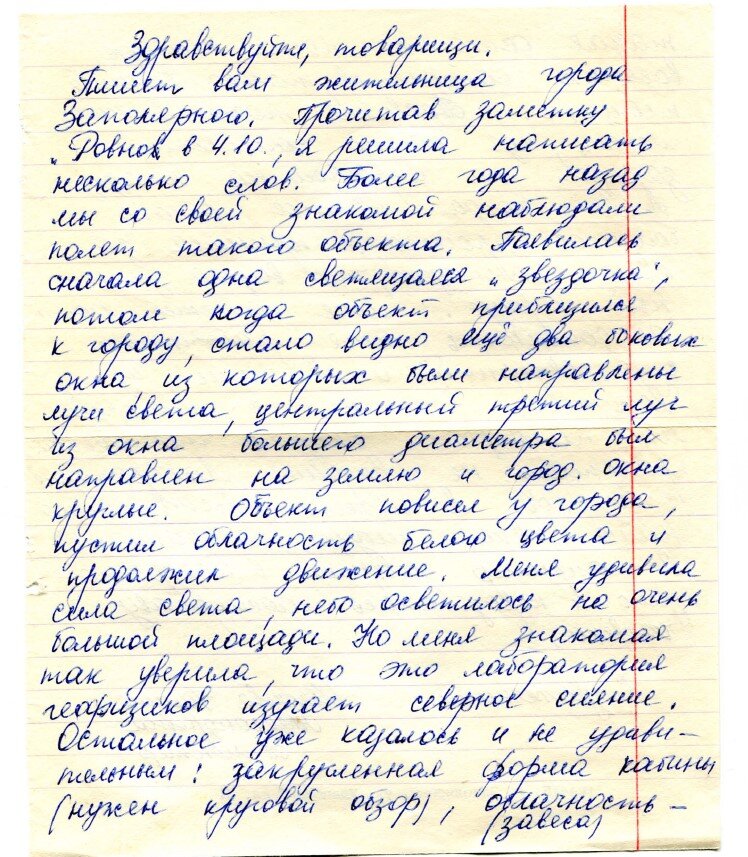 Здравствуйте, товарищи.
Пишет вам жительница города
Заполярного. Прочитав заметку
„Ровно в 4.10., я решила написать
несколько слов. Более года назад
мы со своей знакомой наблюдали
полет такого объекта. Появилась
сначала одна светящаяся „звездочка",
потом когда объект приблизился
к городу, стало видно ещё два боковых
окна, из которых были направлены
лучи света, центральный третий луч
из окна большего диаметра был
направлен на землю и город. Окна
круглые. Объект повисел у города,
пустил облачность белого цвета и
продолжил движение. Меня удивила
сила света, небо осветилось на очень
большой площади. Но меня знакомая
так уверила, что это лаборатория
геофизиков изучает северное сияние.
Остальное уже казалось и не удиви-
тельным: закругленная форма кабины
(нужен круговой обзор), облачность –
(завеса)